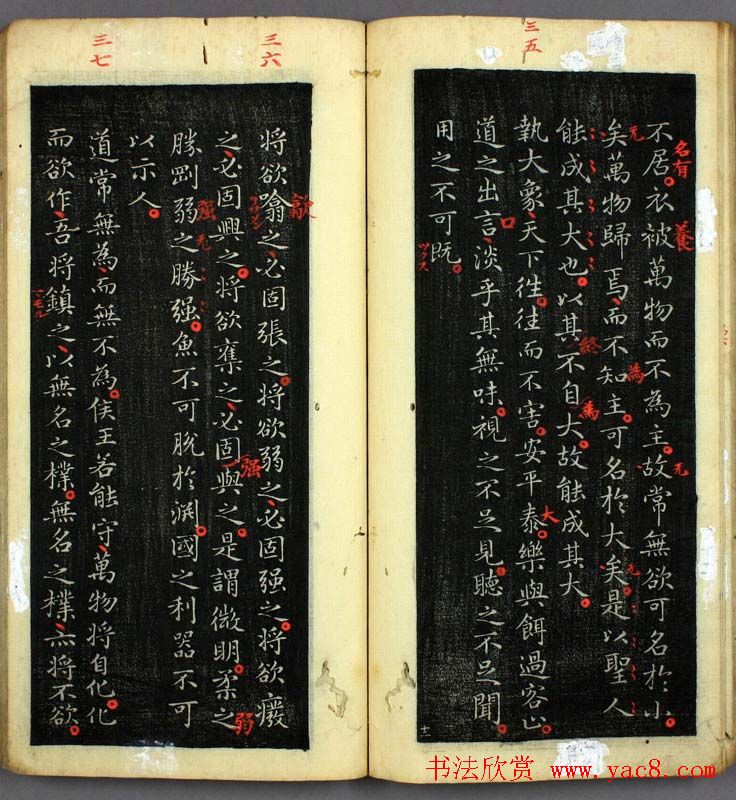 三五
不居衣被萬物而不為主故常無欲可名於小
矣萬物歸焉而不知主可名於大矣是以聖人
能成其大也以其不自大故能成其大
執大象天下徃徃而不害安平泰樂與餌過客止
道之出言淡乎其無味視之不足見聽之不足聞
用之不可既
名有
養
元
為
元
元
終
為
大
口
ツクス
十一
三六
三七
将欲噏之必固張之将欲弱之必固强之将欲廢
之必固興之将欲奪之必固與之是謂微明柔之
勝剛弱之勝强魚不可脱於淵國之利器不可
以示人
道常無為而無不為侯王若能守萬物将自化化
而欲作吾将鎮之以無名之樸無名之樸亦将不欲
歙
强
强
弱
书法欣赏 www.yac8.com